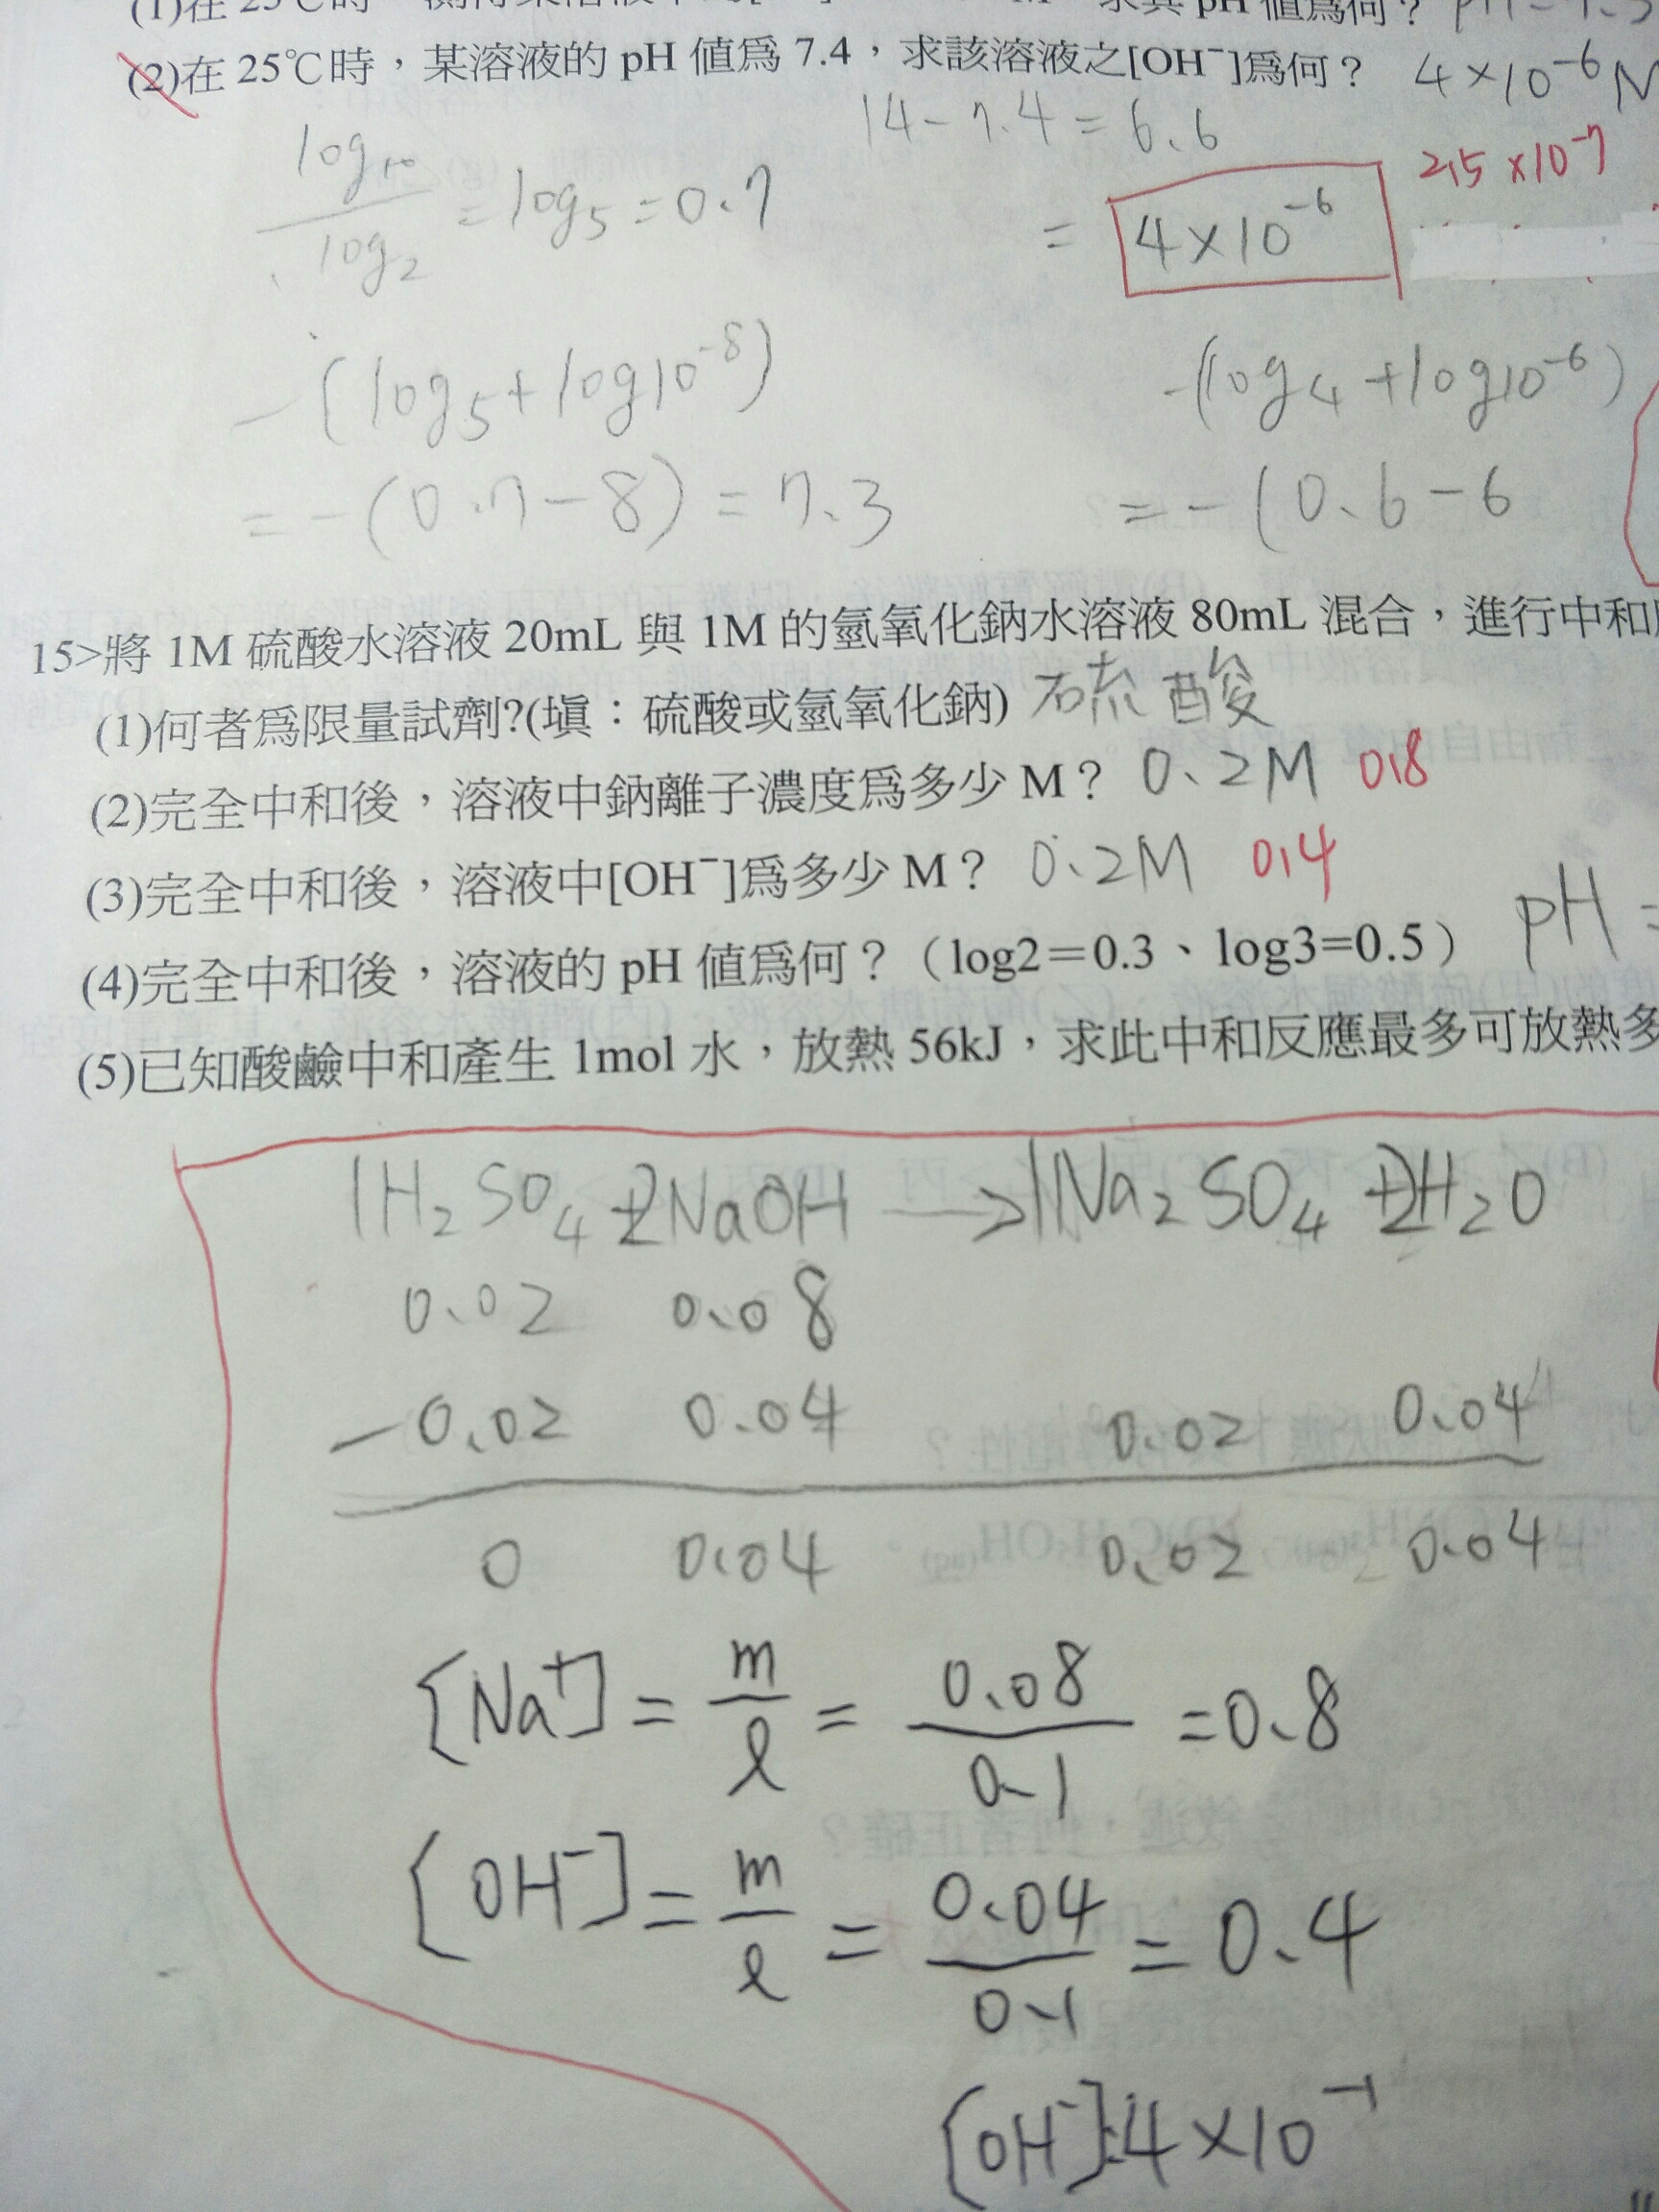 (2)在 25℃時，某溶液的 pH 值爲 7.4，求該溶液之[OH⁻]爲何？ 4×10⁻⁶
14-7.4=6.6
log10 / log2 = log5 = 0.7
2.5×10⁻⁷
= 4×10⁻⁶
-(log5+log10⁻⁸)
-(log4+log10⁻⁶)
=-(0.7-8)=7.3
=-(0.6-6
15>將 1M 硫酸水溶液 20mL 與 1M 的氫氧化鈉水溶液 80mL 混合，進行中和
(1)何者爲限量試劑?(填：硫酸或氫氧化鈉) 硫酸
(2)完全中和後，溶液中鈉離子濃度爲多少 M？ 0.2M 0.8
(3)完全中和後，溶液中[OH⁻]爲多少 M？ 0.2M 0.4
(4)完全中和後，溶液的 pH 值爲何？（log2＝0.3、log3=0.5） pH =
(5)已知酸鹼中和產生 1mol 水，放熱 56kJ，求此中和反應最多可放熱多
1H₂SO₄+2NaOH → 1Na₂SO₄+2H₂O
0.02 0.08
-0.02 0.04 0.02 0.04
0 0.04 0.02 0.04
[Na⁺] = m/l = 0.08/0.1 = 0.8
[OH⁻] = m/l = 0.04/0.1 = 0.4
[OH⁻]:4×10⁻¹